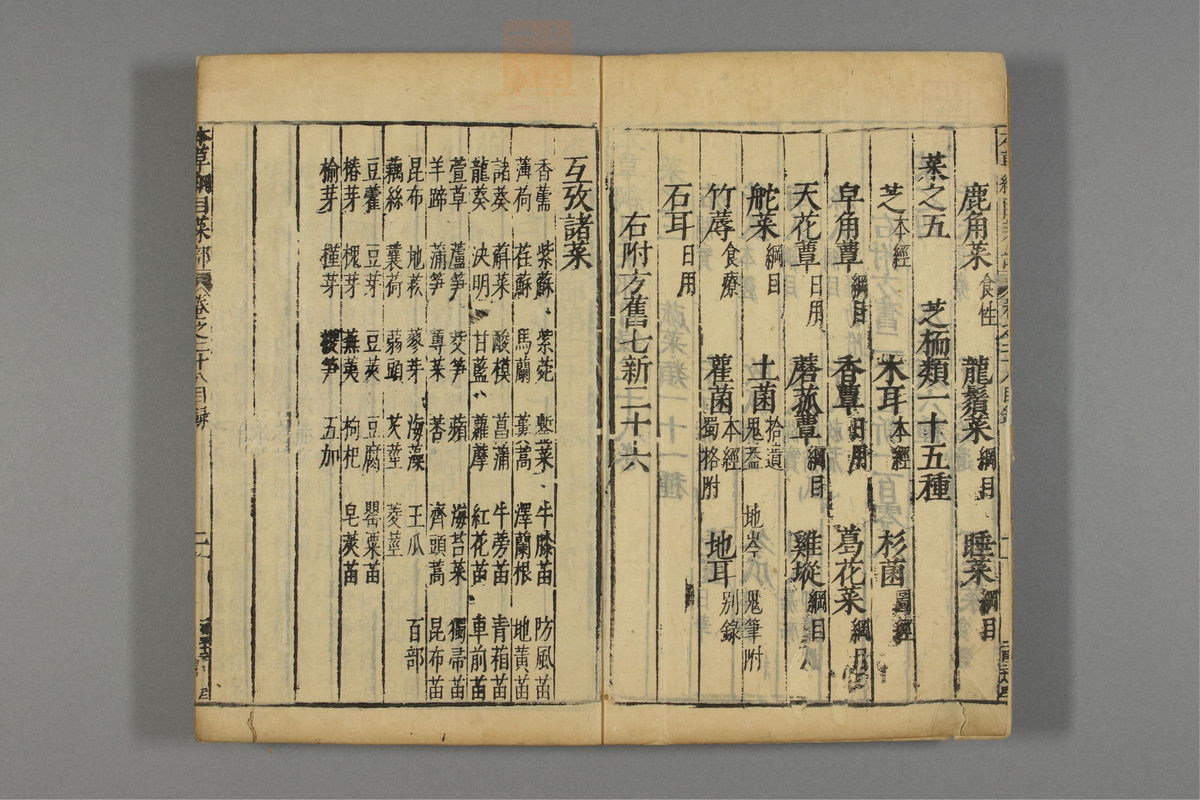 鹿角菜食性 龍鬚菜綱目 睡菜綱目
菜之五 芝栭類一十五種
芝本經 木耳本經 杉菌圖經
皁角蕈綱目 香蕈日用 葛花菜綱目
天花蕈日用 蘑菰蕈綱目 雞㙡綱目
舵菜綱目 土菌拾遺鬼蓋 地岑 鬼筆附
竹蓐食療 雚菌本經蜀格附 地耳別錄
石耳日用
右附方舊七新二十六
互攷諸菜
香薷 紫蘇 紫菀 蟿菜 牛膝苗 防風苗
薄荷 荏蘇 馬蘭 蔞蒿 澤蘭根 地黃苗
諸葵 蔛菜 酸模 菖蒲 牛蒡苗 青葙苗
龍葵 决明 甘藍 蘿藦 紅花苗 車前苗
萱草 蘆笋 茭笋 蘋 海苔菜 獨帚苗
羊蹄 蒲笋 蓴菜 莕 齊頭蒿 昆布苗
昆布 地菘 蓼芽 海藻 王瓜 百部
藕絲 蘘荷 蒻頭 芡莖 菱莖
豆藿 豆芽 豆莢 豆腐 罌粟苗
椿芽 槐芽 蕪荑 枸杞 皂莢苗
榆芽 槿芽 椶笋 五加
本草綱目菜部 卷之二十八目録 二